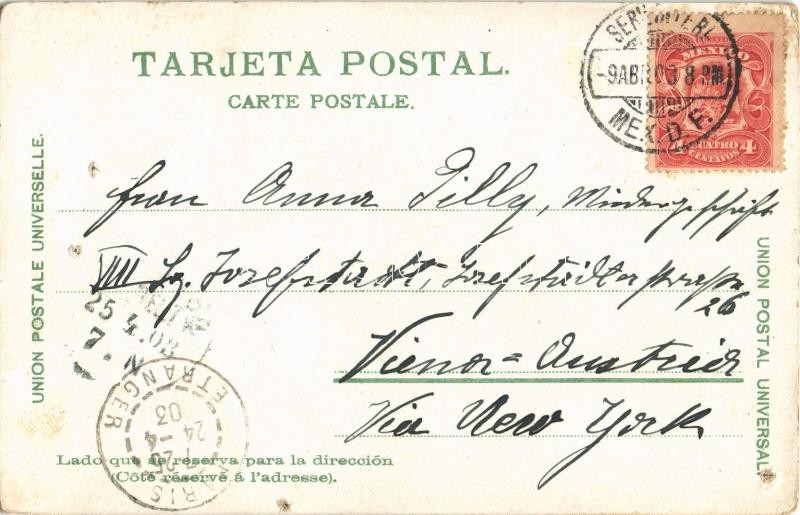 TARJETA POSTAL.
CARTE POSTALE.
UNION POSTALE UNIVERSELLE.
UNION POSTAL UNIVERSAL.
MEXICO
CUATRO 4
CENTAVOS
9 ABR 03 8 P.M.
MEX. D. F.
Frau Anna Pilly, Miedergeschäft
VIII Bz. Josefstadt, Josefstädterstrasse
26
Viena = Austria
Via New York
25 4 03
7
PARIS ETRANGER
7 25
24 - 4
03
Lado que se reserva para la dirección
(Côté réservé á l'adresse).